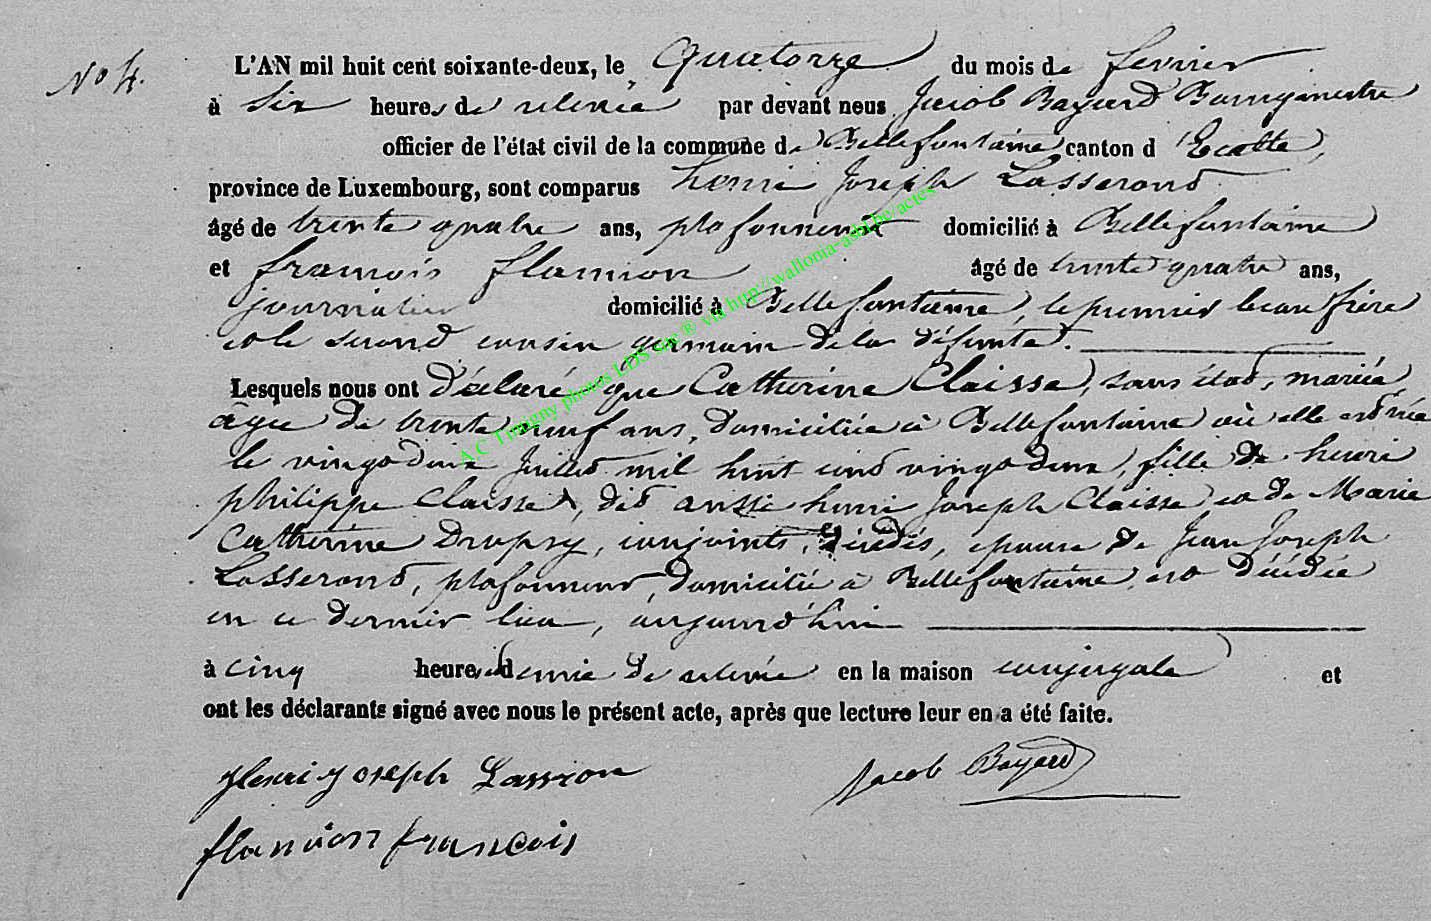 N° 4.
L'AN mil huit cent soixante-deux, le Quatorze du mois de fevrier
à six heures de relevée par devant nous Jacob Bayard Bourgmestre
officier de l'état civil de la commune de Bellefontaine canton d'Etalle,
province de Luxembourg, sont comparus henri Joseph Lasserond
âgé de trente quatre ans, plafonneur domicilié à Bellefontaine
et francois flamion âgé de trente quatre ans,
journalier domicilié à Bellefontaine, le premier beau frère
et le second cousin germain de la défunte.
Lesquels nous ont Déclaré que Catherine Claisse, sans état, mariée,
âgée de trente neuf ans, domiciliée à Bellefontaine où elle est née
le vingt deux juillet mil huit cent vingt deux, fille de henri
philippe Claisse, dit aussi henri Joseph Claisse et de Marie
Catherine Dropsy, conjoints, décédés, épouse de Jean Joseph
Lasserond, plafonneur, domicilié à Bellefontaine, est décédée
en ce dernier lieu, aujourd'hui
à cinq heures demie de relevée en la maison conjugale et
ont les déclarants signé avec nous le présent acte, après que lecture leur en a été faite.
Henri Joseph Lassron Jacob Bayard
flamion francois
A.C Tintigny photos LDS one ® via http://wallonia-asbl.be/actes